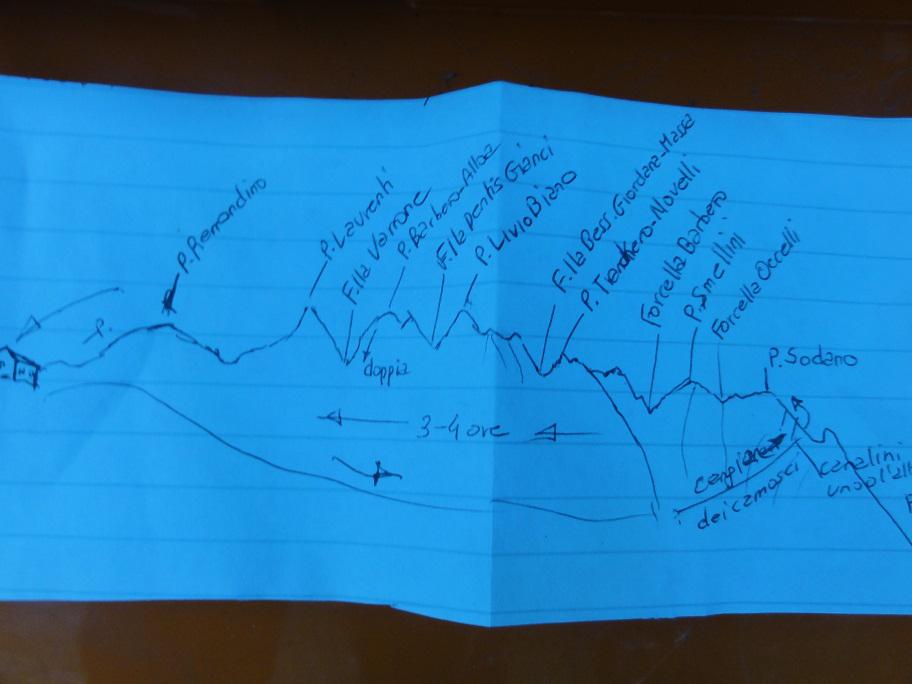 P. Remondino
P. Laurenti
F.lla Varrone
P. Barbero-Alloa
F.lla Dentis Gianci
P. Livio Biano
F.lla Bess. Giordana-Massa
P. Trenkero-Novelli
Forcella Barbero
P. Smellini
Forcella Occelli
P. Sodano
P.
doppia
3-4 ore
cengione
dei camosci
canalini
uno o l'alt